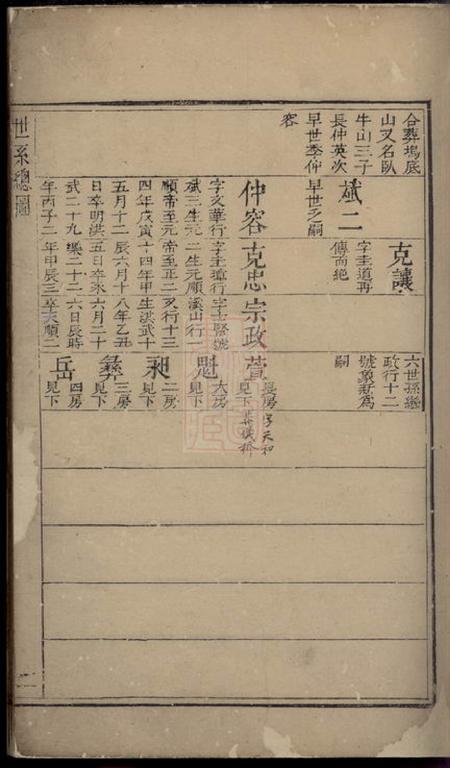 合葬塢底
山又名臥
牛山三子
長仲英次
早世季仲
容
斌二
早世之嗣
克讓
字圭道再
傳而絕
六世孫繼
政行十二
號象新為
嗣
仲容
字文華行
斌三生元
順帝至元
四年戊寅
五月十二
日卒明洪
武二十九
年丙子二
克忠
字圭璋行
二生元順
帝至正二
十四年甲
辰六月十
五日卒永
樂二十二
年甲辰三
宗政
字賢號
溪山行一
又行十三
生洪武十
八年乙丑
六月二十
六日辰時
卒天順二
萱
長房
見下
字天和
魁
大房
見下
昶
二房
見下
彝
三房
見下
岳
四房
見下
世系總圖